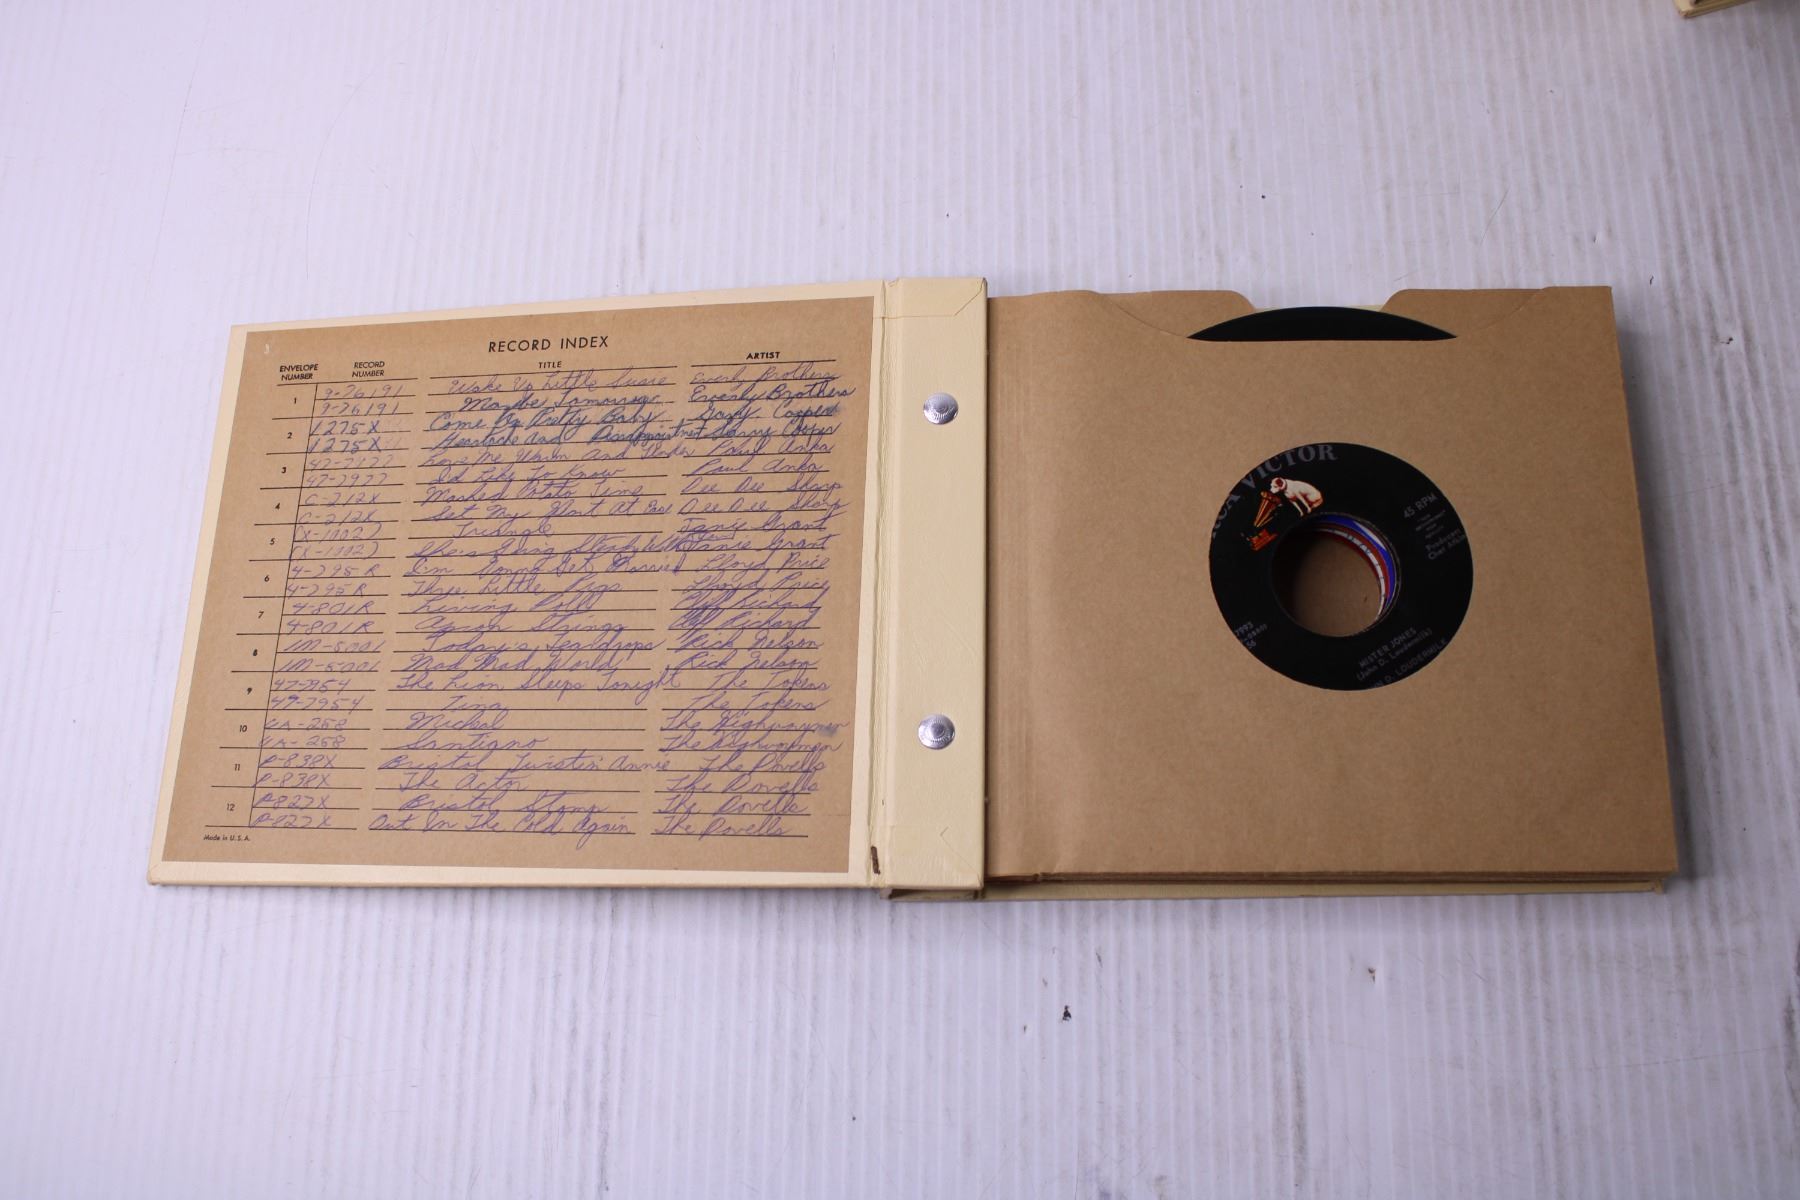 RECORD INDEX
ENVELOPE NUMBER RECORD NUMBER TITLE ARTIST
1 9-76191 Wake Up Little Susie Everly Brothers
9-76191 Maybe Tomorrow Everly Brothers
2 1275X Come On Pretty Baby Gary Cooper
1275X Heartache And Disappointment Garry Cooper
3 47-7977 Love Me Warm And Tender Paul Anka
47-7977 I'd Like To Know Paul Anka
4 C-212X Mashed Potato Time Dee Dee Sharp
C-212X Set My Heart At Ease Dee Dee Sharp
5 (X-1002) Triangle Janie Grant
(X-1002) She's Going Steady With Janie Grant
6 4-795R I'm Gonna Get Married Lloyd Price
4-795R Three Little Pigs Lloyd Price
7 4-801R Living Doll Cliff Richard
4-801R Apron Strings Cliff Richard
8 IM-5001 Today's Teardrops Rick Nelson
IM-5001 Mad Mad World Rick Nelson
9 47-7954 The Lion Sleeps Tonight The Tokens
47-7954 Tina The Tokens
10 UA-258 Micheal The Highwaymen
UA-258 Santiano The Highwaymen
11 P-838X Bristol Twistin' Annie The Dovells
P-838X The Actor The Dovells
12 P-827X Bristol Stomp The Dovells
P-827X Out In The Cold Again The Dovells
Made in U.S.A.
RCA VICTOR
45 RPM
Produced by
Chet Atkins
7993
MISTER JONES
(John D. Loudermilk)
JOHN D. LOUDERMILK